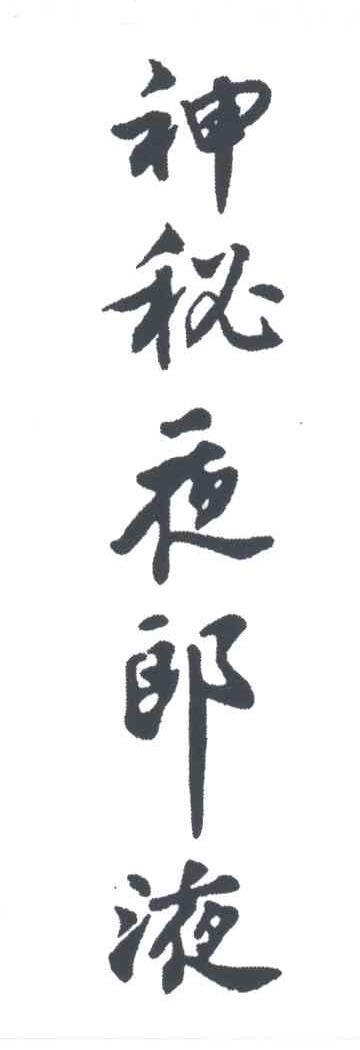 神秘夜郎液